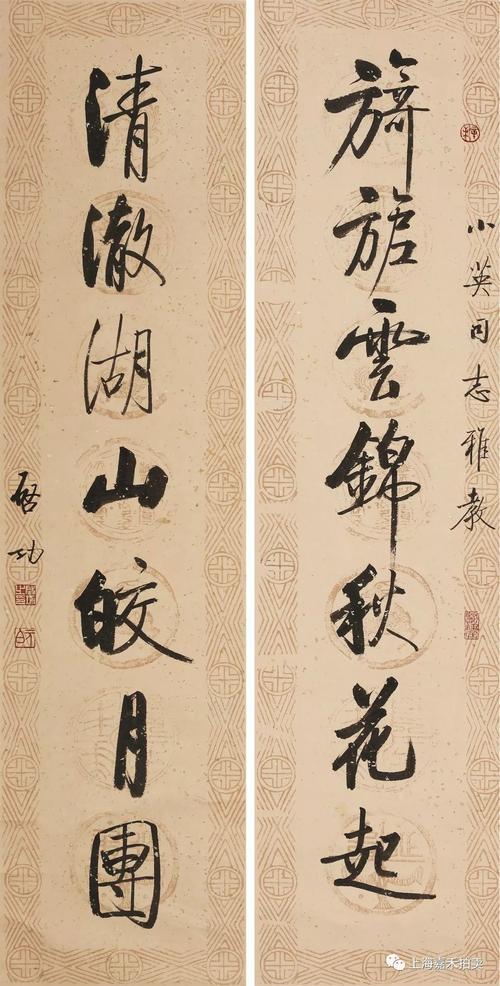 旖旎雲錦秋花起
小英同志雅教
清澈湖山皎月團
启功
上海嘉禾拍卖